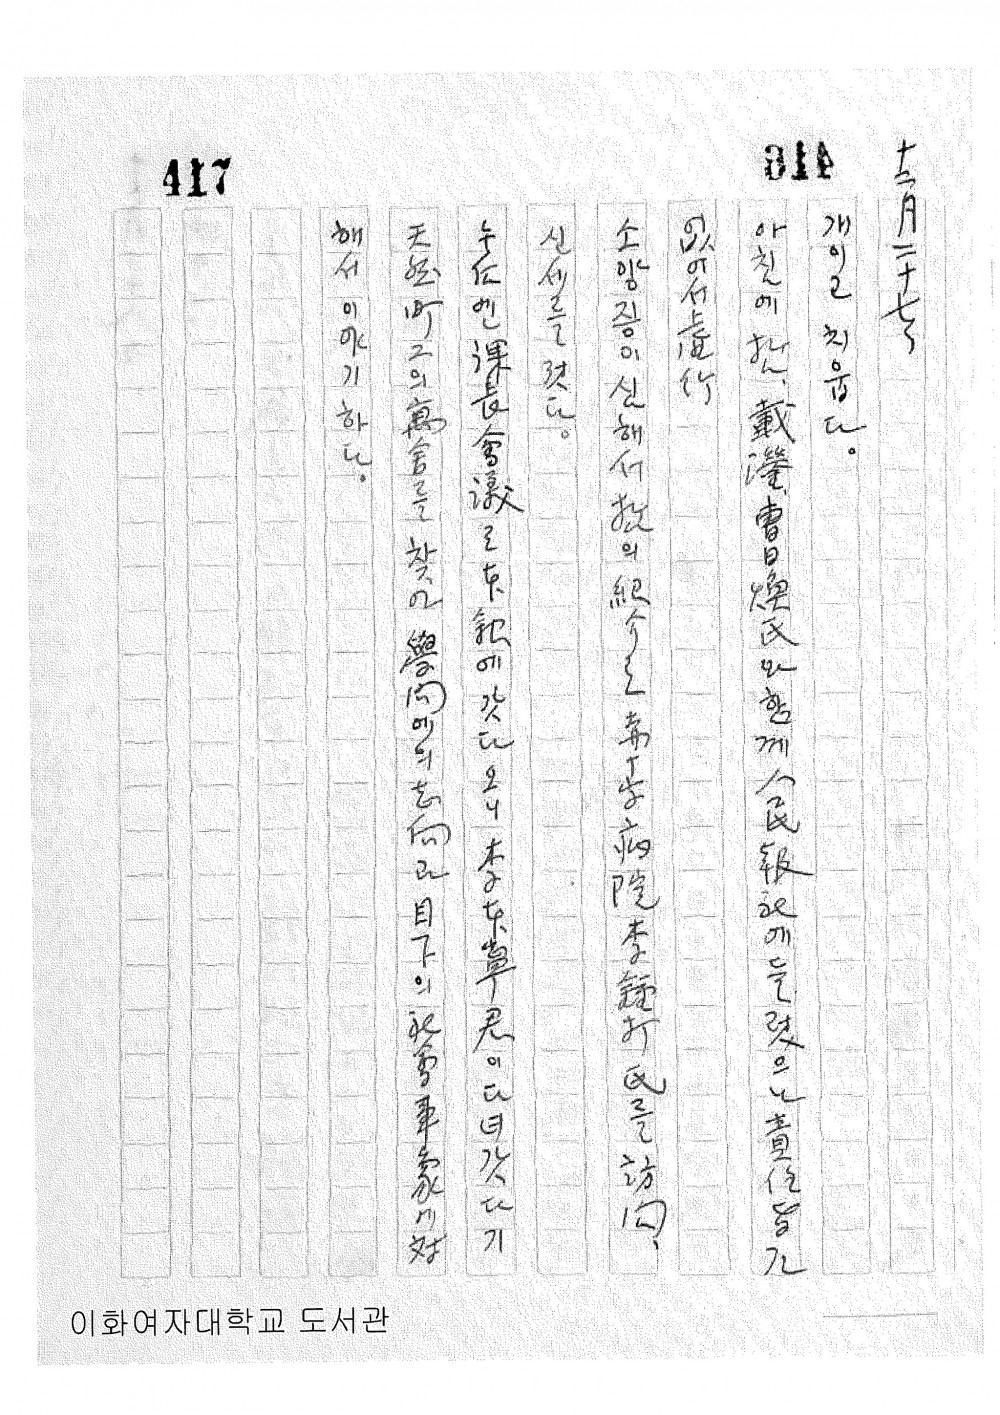 417
314
十二月二十七日
개이고 치웁다。
아침에 哲、載瀅、曺日煥氏와 함께 人民報社에 들렷으나 責任者가
없어서 虛行
소양증이 심해서 哲의 紹介로 病院 李鍾 氏를 訪問、
신세를 젓다。
눈 課長會議로 本館에 갓다 오니 李 君이 다녀갓다기
天然町 그의 寓舍를 찾아 學問에의 志向과 目下의 社會事象에 対
해서 이야기 하다。
이화여자대학교 도서관